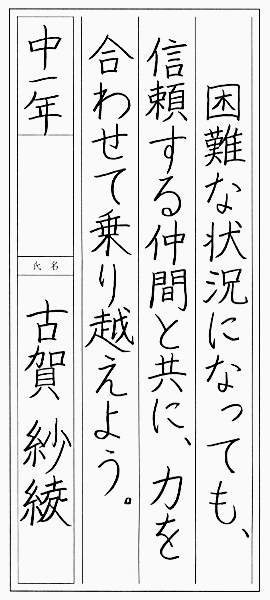 困難な状況になっても、
信頼する仲間と共に、力を
合わせて乗り越えよう。
中一年
氏名
古賀 紗綾